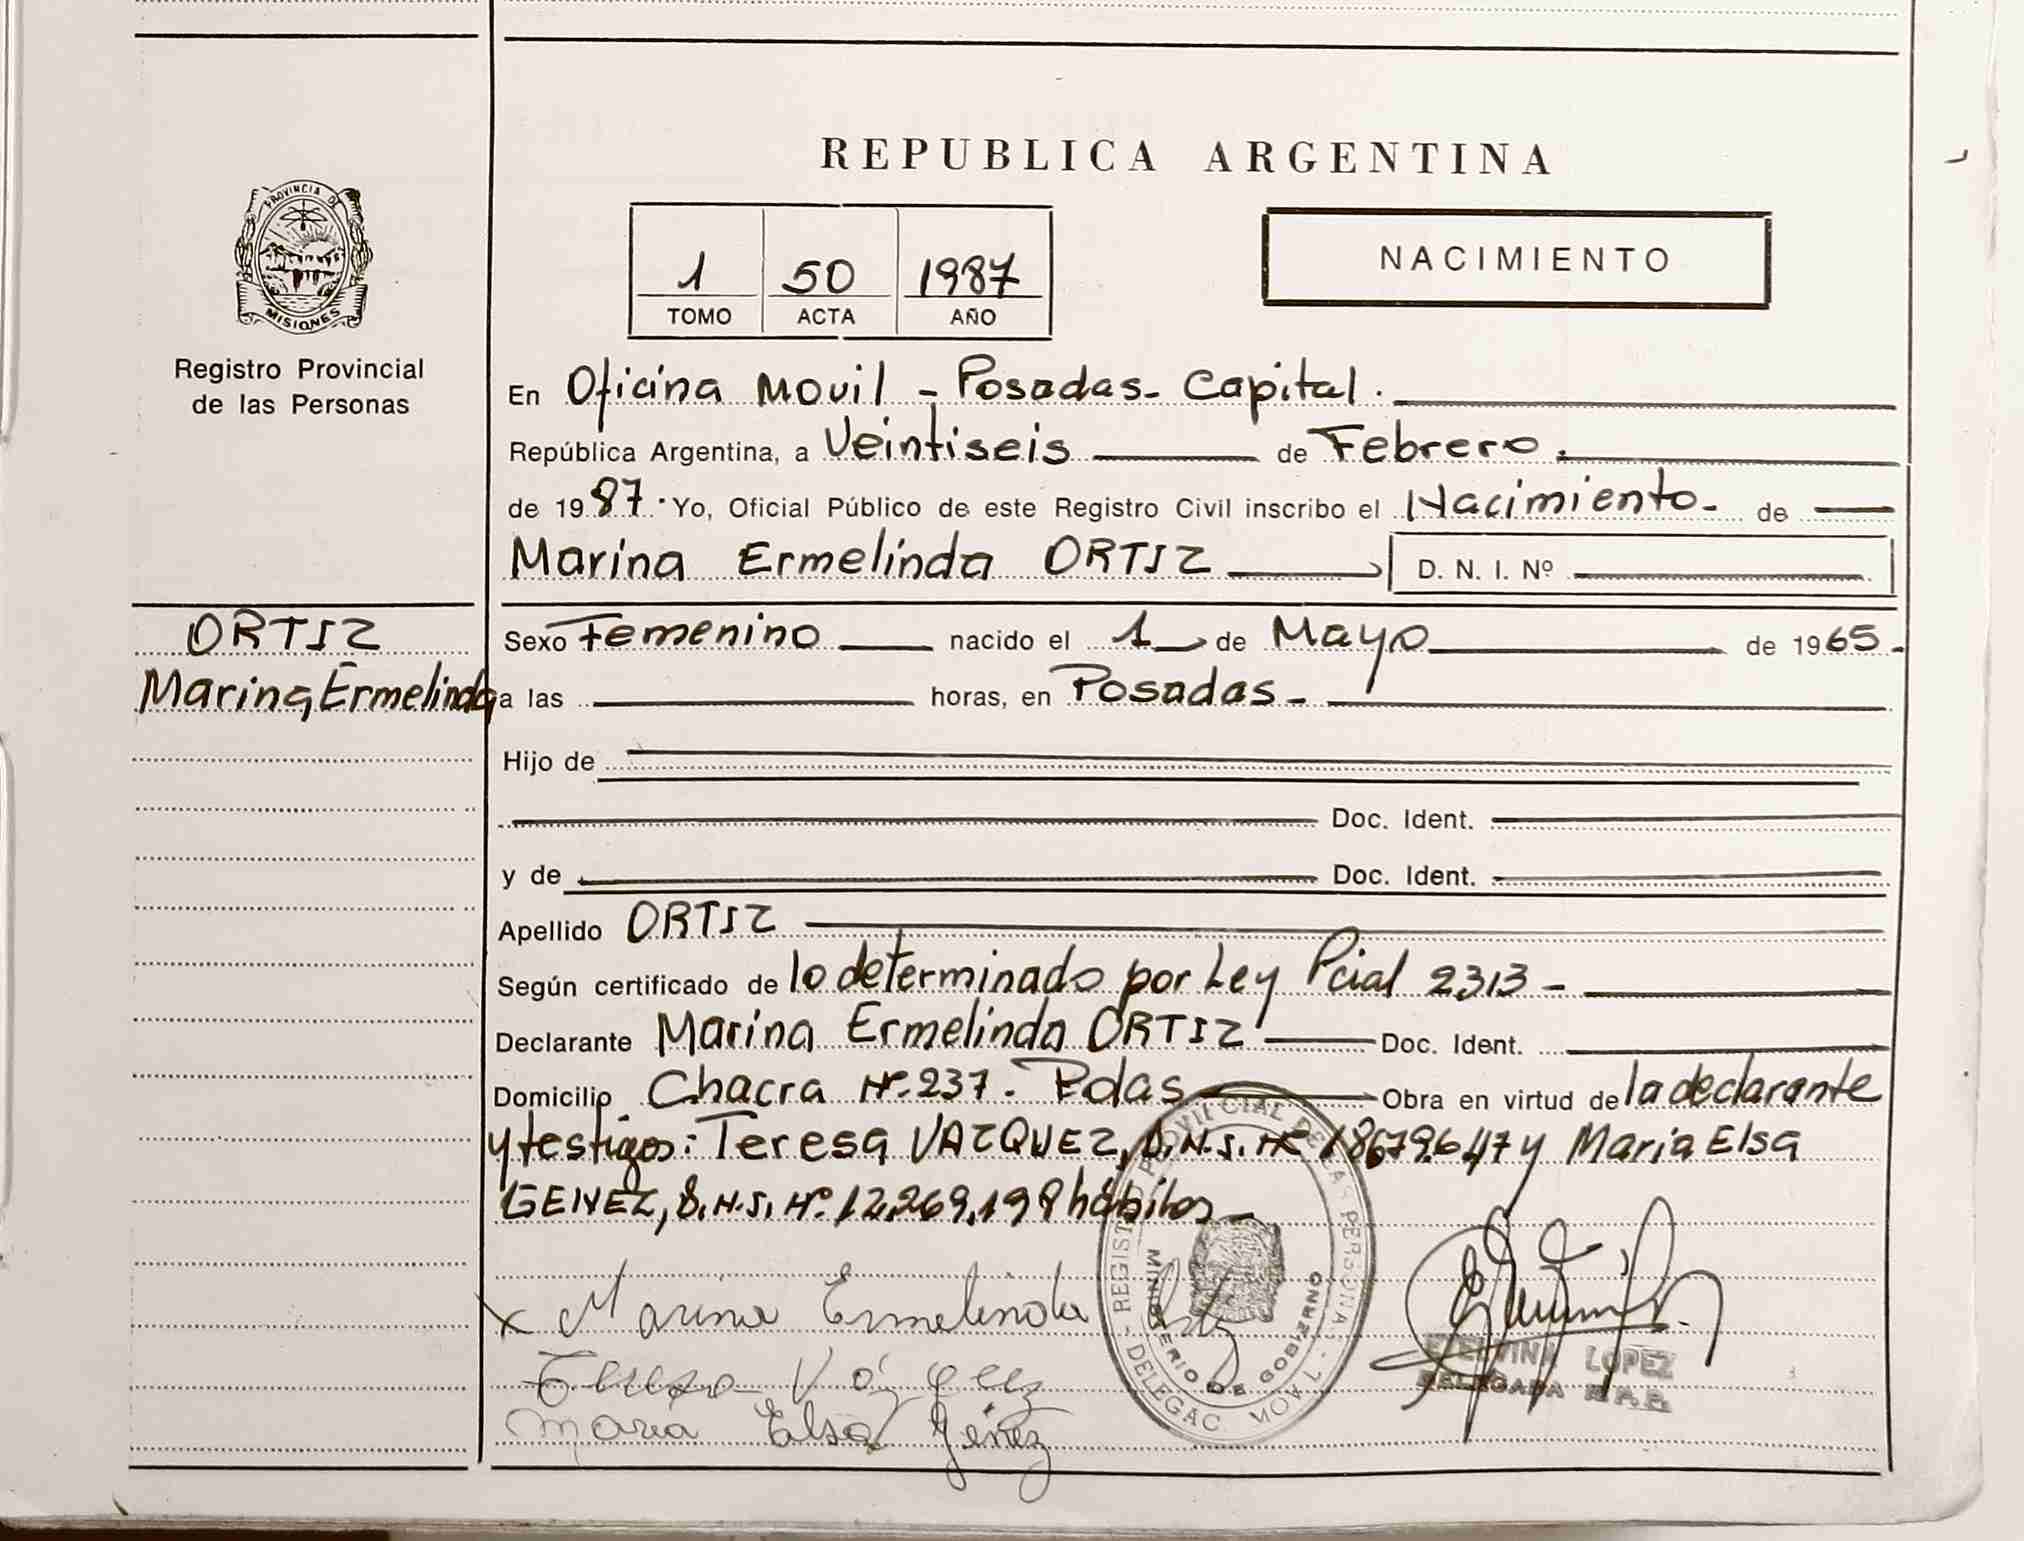 REPUBLICA ARGENTINA
PROVINCIA DE
MISIONES
Registro Provincial
de las Personas
1 50 1987
TOMO ACTA AÑO
NACIMIENTO
En Oficina Movil - Posadas - Capital.
República Argentina, a Veintiseis de Febrero.
de 1987. Yo, Oficial Público de este Registro Civil inscribo el Nacimiento - de
Marina Ermelinda ORTIZ D. N. I. Nº
ORTIZ
Marina Ermelinda
Sexo Femenino nacido el 1 de Mayo de 1965 -
a las horas, en Posadas -
Hijo de
Doc. Ident.
y de Doc. Ident.
Apellido ORTIZ
Según certificado de lo determinado por Ley Pcial 2313 -
Declarante Marina Ermelinda ORTIZ Doc. Ident.
Domicilio Chacra Nº 237. Pdas Obra en virtud de la declarante
y testigos: Teresa VAZQUEZ, D.N.I. Nº 18.679.647 y Maria Elsa
GENEZ, D.N.I. Nº 12.269.198 hábiles -
x Marina Ermelinda Ortiz
Teresa Vázquez
Maria Elsa Génez
REGISTRO PROVINCIAL DE LAS PERSONAS
MINISTERIO DE GOBIERNO
- DELEGAC. MOVIL -
LOPEZ
DELEGADA